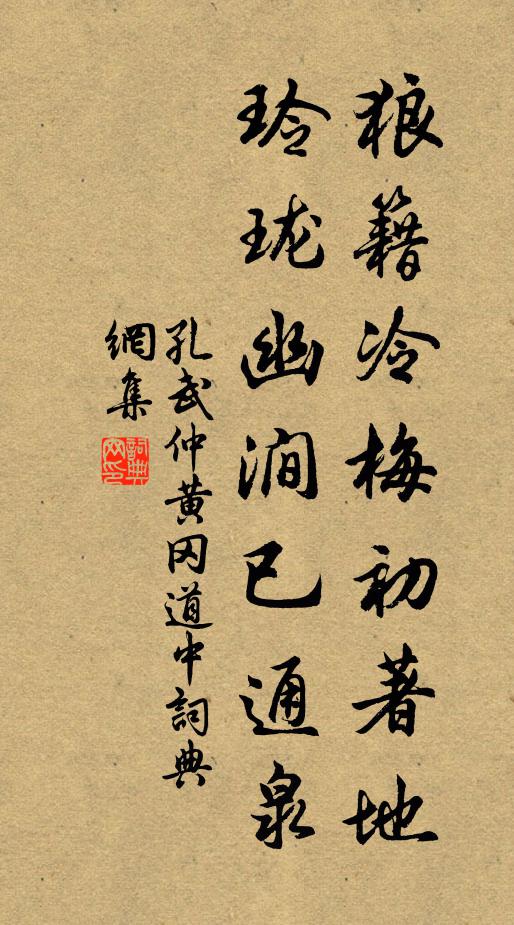 狼籍冷梅初著地
玲珑幽澗已通泉
孔武仲黄冈道中詞典
網集
詞典
网印